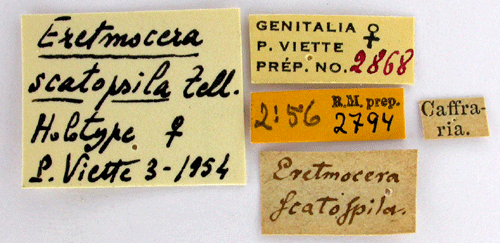 Eretmocera
scatopsila Zell.
Holotype ♀
P. Viette 3-1954
GENITALIA ♀
P. VIETTE
PRÉP. NO. 2868
2:56 R.M. prep.
2794
Caffra-
ria.
Eretmocera
scatospila.